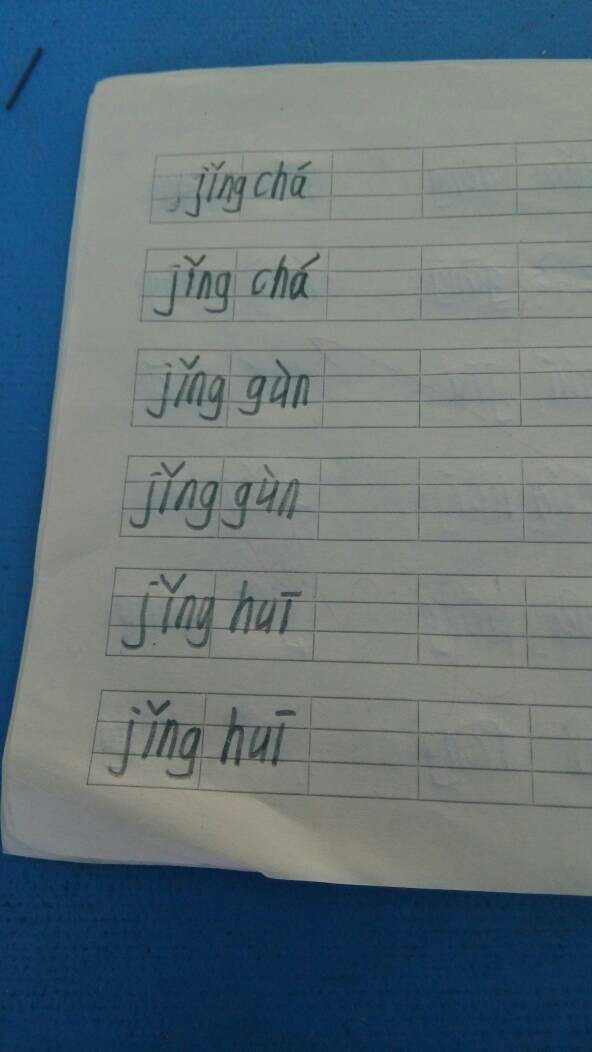 jǐng chá
jǐng chá
jǐng gùn
jǐng gùn
jǐng huī
jǐng huī